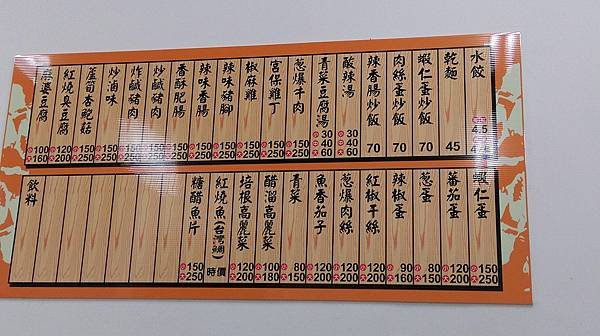 水餃 4.5
乾麵 45
蝦仁蛋炒飯 70
肉絲蛋炒飯 70
辣香腸炒飯 70
酸辣湯 小30 中40 大60
青菜豆腐湯 小30 中40 大60
葱爆牛肉 小150 大250
宮保雞丁 小150 大250
椒麻雞 小150 大250
辣味豬腳 小150 大250
辣味香腸 小150 大250
香酥肥腸 小150 大250
炒鹹豬肉 小150 大250
炸鹹豬肉 小150 大250
炒滷味 小150 大250
蘆筍杏鮑菇 小150 大250
紅燒臭豆腐 小120 大200
麻婆豆腐 小100 大160
蝦仁蛋 小150 大250
蕃茄蛋 小120 大200
葱蛋 小80 大150
辣椒蛋 小90 大160
紅椒干絲 小120 大200
葱爆肉絲 小120 大200
魚香茄子 小120 大200
青菜 小80 大150
醋溜高麗菜 小100 大180
培根高麗菜 小120 大200
紅燒魚(台灣鯛) 時價
糖醋魚片 小150 大250
飲料